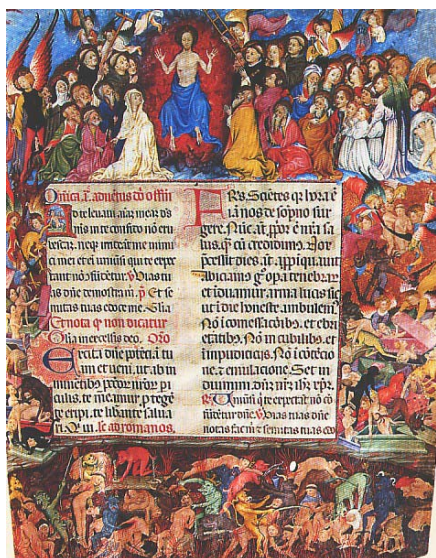 Dnica i. aduentus
Ad te leuaui aiam meā ds
ms in te confido nō eru
bescā. neqꝫ irrideāt me inimi
ci mei et ei uniūsi qui te expe
ctant nō 9fūdētur. ℣ Vias tu
as dn̄e demostra m. p̄. Et se
mitas tuas edoce me. Glīa
Et nota qr non dicatur
Glīa in excelsis deo. Orō
Excita dn̄e potētiā tu
am et ueni. ut ab im
minētibꝫ pctor̄ nrorꝫ pi
culis. te meamur p̄tegē
te eripi. te libante salua
ri. Qui ui. ad romanos.
Frs. Sciētes qr hora ē
iā nos de sopno sur
gere. Nūc aūt ppor ē nrā sa
lus. qꝫ cū credidimꝰ. Nox
p̄cessit dies aūt appiquauit
Abiciamꝰ g° opa tenebrar̄
et iduamur arma lucis sic
ut ī die honeste ambulem̄.
Nō ī comessaciōibꝫ. et ebri
etatibꝫ. Nō in cubilibꝫ et
impudiciciis. Nō ī cōtēcio
ne. et emulacione. Set in
duimini dn̄m nr̄m ihm xpm.
℟ Vniūsi q̄ te expectāt nō cō
fūdētur dn̄e. ℣ Vias tuas dn̄e
notas fac m̄ et semitas tuas edo